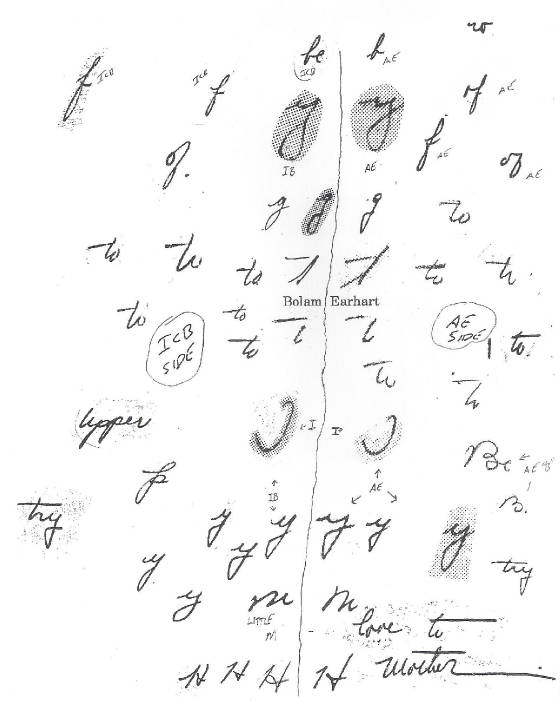 ro
be b AE
ICB
f ICB ICB f of AE
y y
f AE
of. IB AE of AE
g g g to
to to to t t to to
Bolam Earhart
to to t t
ICB SIDE to AE SIDE to.
to to
Upper J I I J
Be AE
p IB AE B.
try y y y y y
y y try
y m m
LITTLE M
love to
H H H H Mother